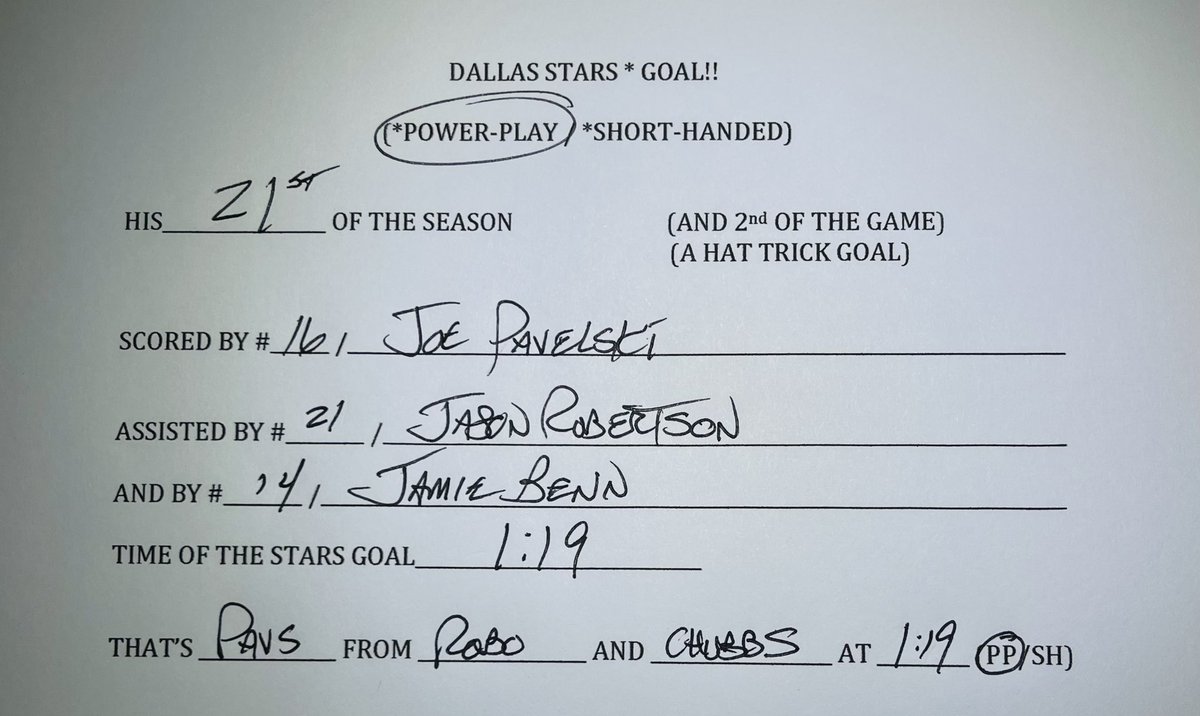 DALLAS STARS * GOAL!!
(*POWER-PLAY / *SHORT-HANDED)
HIS 21ST OF THE SEASON (AND 2nd OF THE GAME)
(A HAT TRICK GOAL)
SCORED BY # 16 / JOE PAVELSKI
ASSISTED BY # 21 / JASON ROBERTSON
AND BY # 14 / JAMIE BENN
TIME OF THE STARS GOAL 1:19
THAT'S PAVS FROM ROBO AND CHUBBS AT 1:19 (PP/SH)